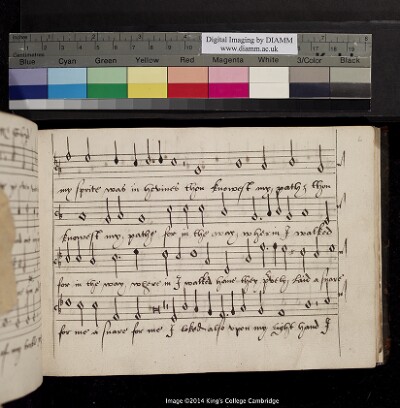 Digital Imaging by DIAMM
www.diamm.ac.uk
Centimetres
Blue Cyan Green Yellow Red Magenta White 3/Color Black
my sprite was in hevines thou knowest my path; thou
knowest my pathe for in the way wherin I walked
for in the way where in I walked have they prively laid a snare
for me a snare for me I loked also upon my right hand I
Image ©2014 King's College Cambridge